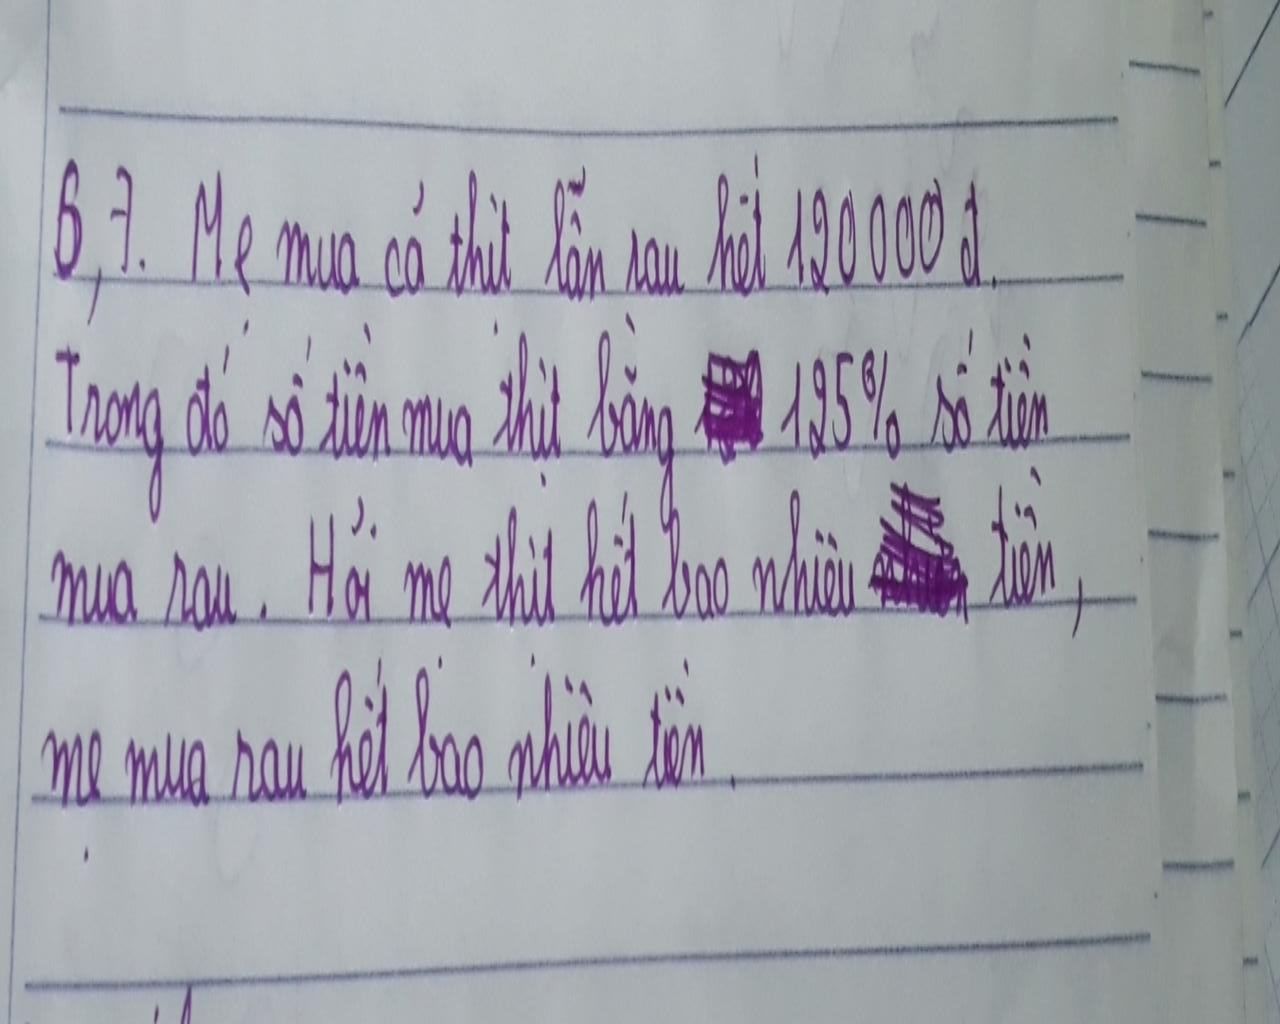 B,7. Mẹ mua cá thịt lẫn rau hết 120000đ.
Trong đó số tiền mua thịt bằng 125% số tiền
mua rau. Hỏi mẹ thịt hết bao nhiêu tiền,
mẹ mua rau hết bao nhiêu tiền.